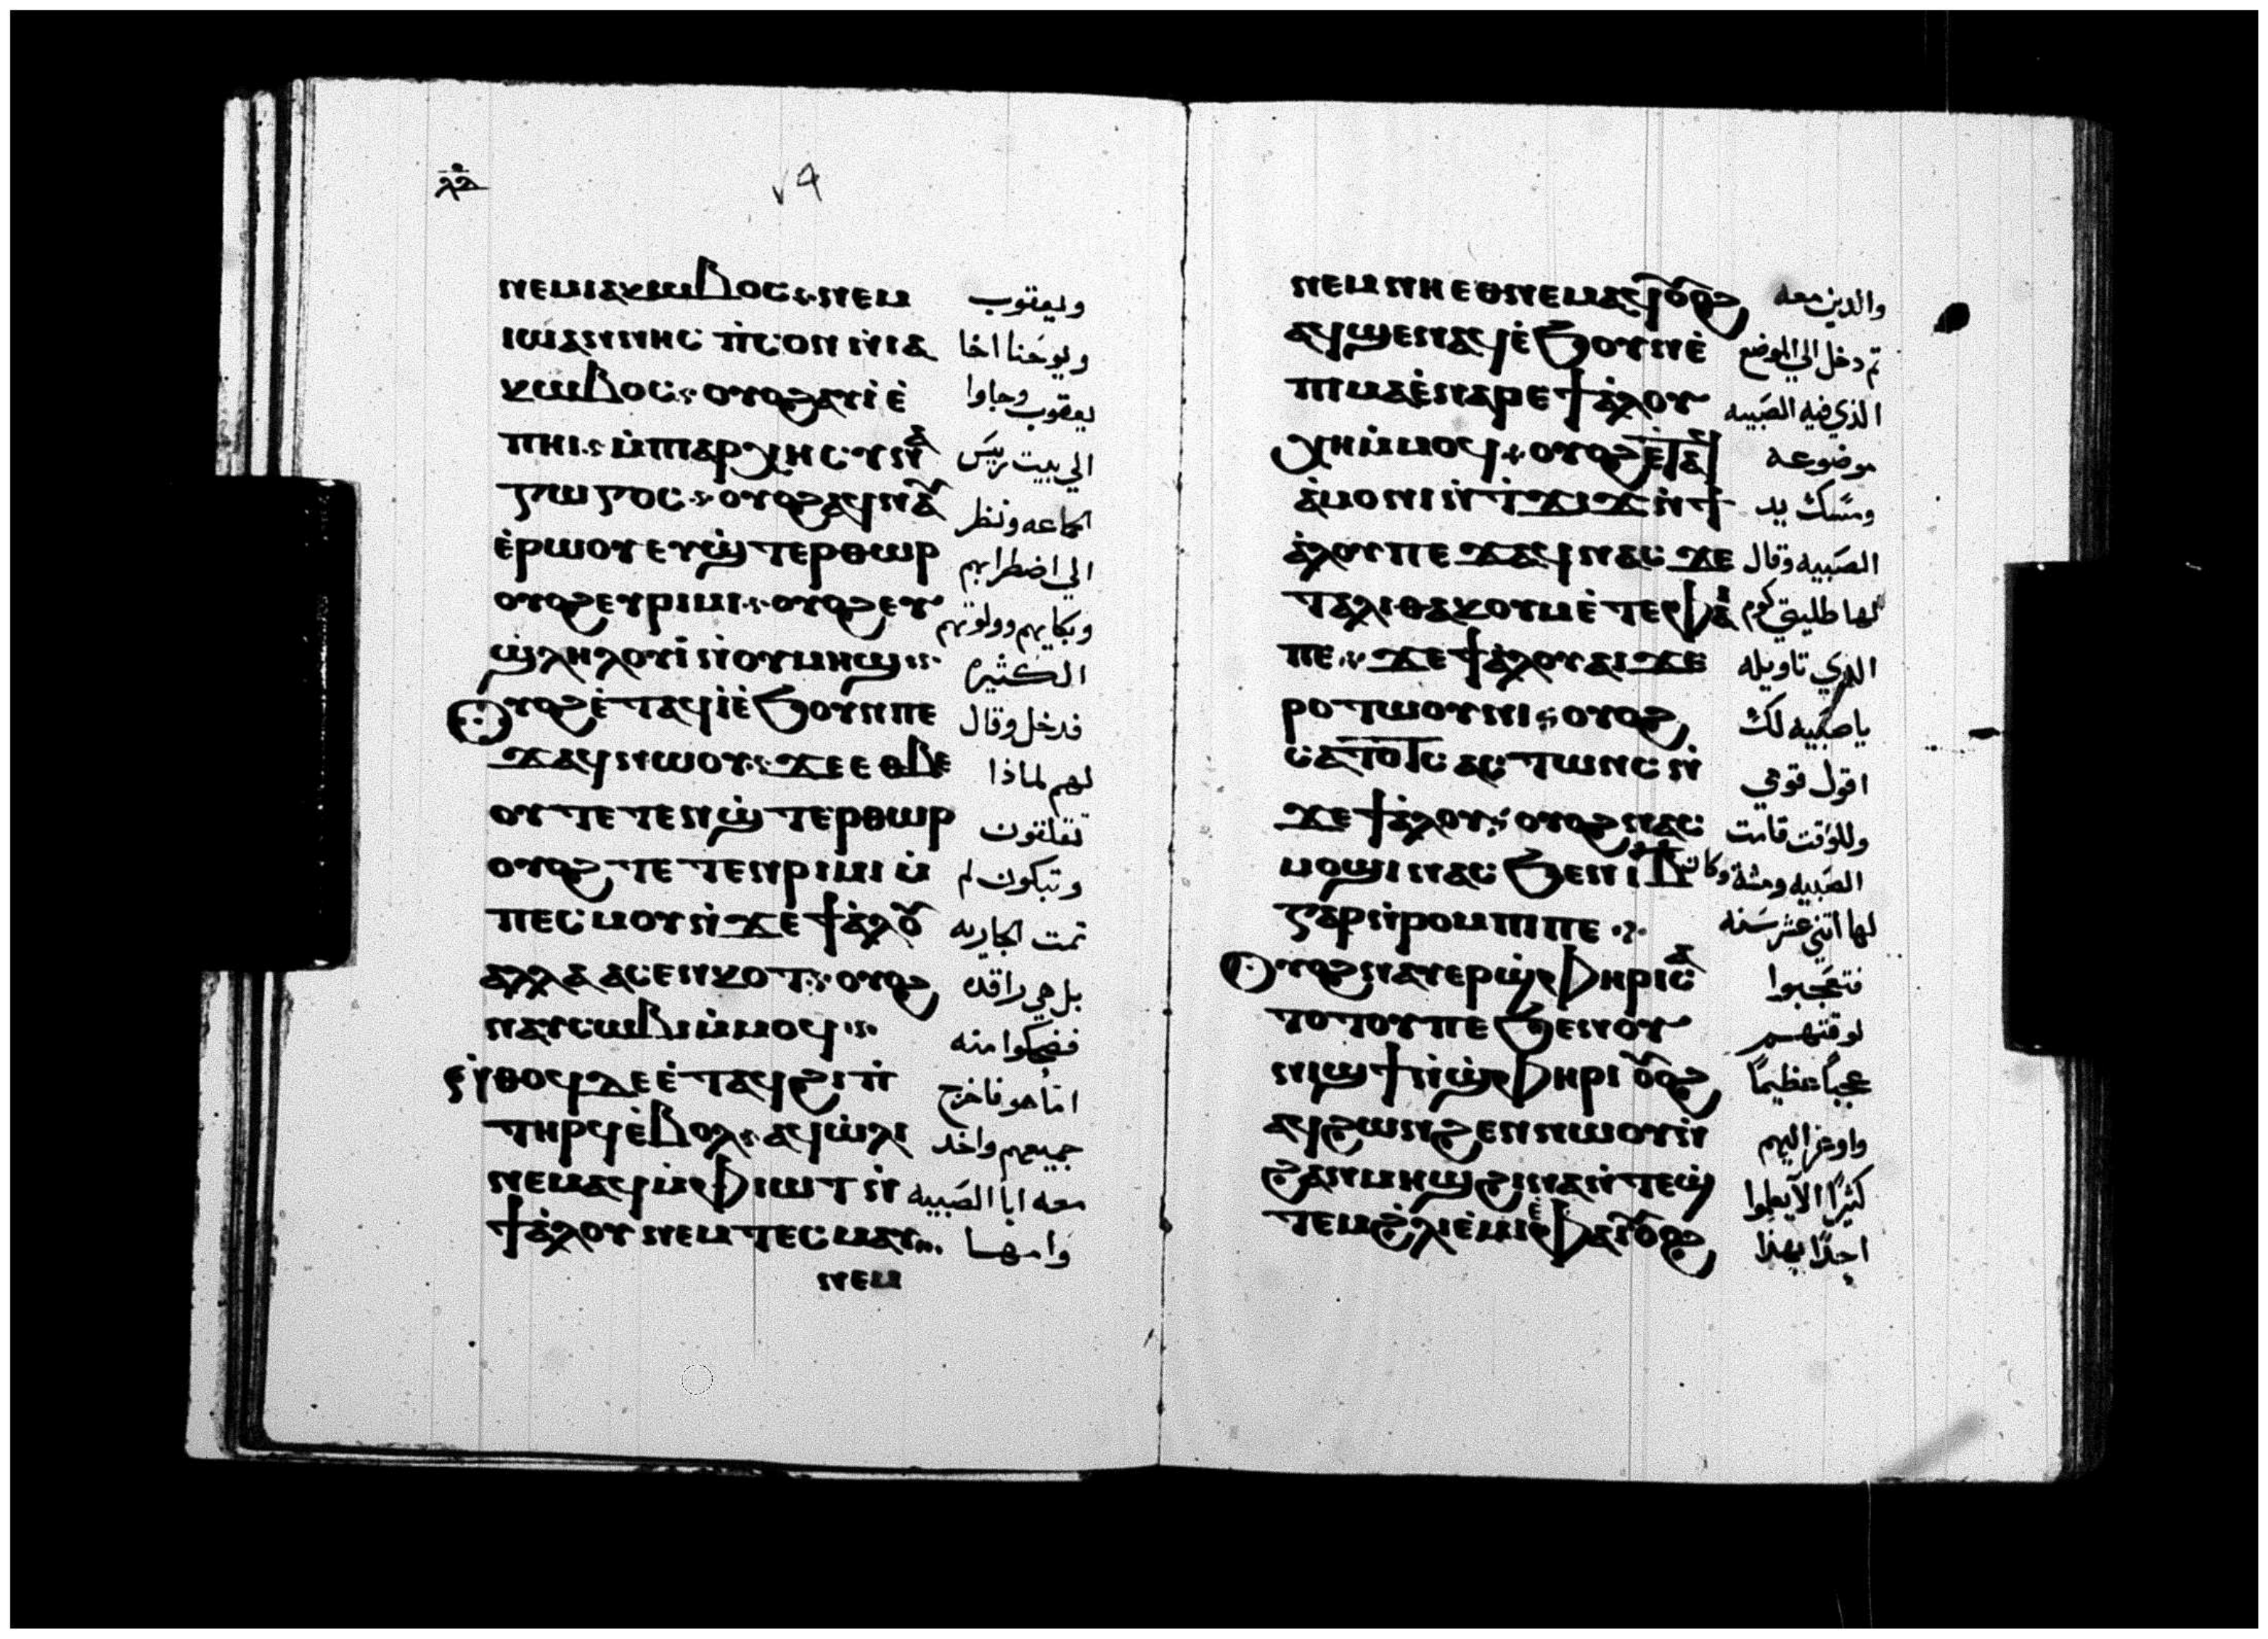 ⲗ︦ⲋ︦ ٧٩
ⲛⲉⲙⲓⲁⲕⲱⲃⲟⲥ:ⲛⲉⲙ وليعقوب
ⲓⲱⲁⲛⲛⲏⲥ ⲡ̀ⲥⲟⲛ ⲛ̀ⲓⲁ ويوحنا اخا
ⲕⲱⲃⲟⲥ: ⲟⲩⲟϩⲁⲩⲓ̀ ⲉ̀ يعقوب وجاوا
ⲡⲏⲓ: ⲙ̀ⲡⲁⲣⲭⲏⲥⲩⲛⲁ الي بيت ريس
ⲅⲱⲅⲟⲥ: ⲟⲩⲟϩⲁϥⲛⲁⲩ الجاعه ونظر
ⲉ̀ⲣⲱⲟⲩ ⲉⲩϣ̀ⲧⲉⲣⲑⲱⲣ الي اضطرابهم
ⲟⲩⲟϩⲉⲩⲣⲓⲙⲓ: ⲟⲩⲟϩⲉⲩ وبكايهم وولولتهم
ϣ̀ⲗⲏⲗⲟⲩⲓ̀ ⲛ̀ⲟⲩⲙⲏϣ: الكثيره
ⲟⲩⲟϩⲉ̀ⲧⲁϥⲓ̀ⲉ̀ϧⲟⲩⲛⲡⲉ فدخل وقال
ϫⲁϥⲛⲱⲟⲩ: ϫⲉ ⲉⲑⲃⲉ لهم لماذا
ⲟⲩ ⲧⲉⲧⲉⲛϣ̀ⲧⲉⲣⲑⲱⲣ تقلقون
ⲟⲩⲟϩ ⲧⲉⲧⲉⲛⲣⲓⲙⲓ ⲙ̀ وتبكون لم
ⲡⲉⲥⲙⲟⲩⲛ̀ϫⲉ ϯⲁ̀ⲗⲟⲩ تمت الجاريه
ⲁⲗⲗⲁ ⲁⲥⲉⲛⲕⲟⲧ: ⲟⲩⲟϩ بل هي راقده
ⲛⲁⲩⲥⲱⲃⲓⲙ̀ⲙⲟϥ: فضحكوا منه
ⲛ̀ⲑⲟϥⲇⲉ ⲉ̀ⲧⲁϥϩⲓⲡ̀ امّا هو فاخرج
ⲧⲏⲣϥⲉ̀ⲃⲟⲗ: ⲁϥⲱ̀ⲗⲓ جميعهم واخد
ⲛⲉⲙⲁϥⲙ̀ⲫⲓⲱⲧ ⲛ̀ معه ابا الصبيه
ϯⲁ̀ⲗⲟⲩ ⲛⲉⲙ ⲧⲉⲥⲙⲁⲩ: وامها
ⲛⲉⲙ
ⲛⲉⲙ ⲛⲏⲉⲑⲛⲉⲙⲁϥ ⲟⲩⲟϩ والدين معه
ⲁϥϣⲉⲛⲁϥⲉ̀ϧⲟⲩⲛⲉ̀ تم دخل الي الموضع
ⲡⲓⲙⲁⲉ̀ⲛⲁⲣⲉ ϯⲁ̀ⲗⲟⲩ الذي فيه الصبيه
ⲭⲏⲙ̀ⲙⲟϥ: ⲟⲩⲟϩⲉ̀ⲧⲁϥ موضوعه
ⲁ̀ⲙⲟⲛⲓ ⲛ̀ⲧ̀ϫⲓϫ ⲛ̀ϯ ومسك يد
ⲁ̀ⲗⲟⲩ ⲡⲉϫⲁϥⲛⲁⲥ ϫⲉ الصبيه وقال
ⲧⲁⲗⲓⲑⲁⲕⲟⲩⲙ ⲉ̀ⲧⲉⲫⲁⲓ لها طليتي كوم
ⲡⲉ: ϫⲉ ϯⲁ̀ⲗⲟⲩ ⲁⲓϫⲉ الذي تاويله
ⲣⲟ ⲧⲱⲟⲩⲛⲓ: ⲟⲩⲟϩ يا صبيه لك
ⲥⲁⲧⲟⲧⲥ ⲁⲥⲧⲱⲛⲥ ⲛ̀ اقول قومي
ϫⲉ ϯⲁ̀ⲗⲟⲩ: ⲟⲩⲟϩ ⲛⲁⲥ وللوقت قامت
ⲙⲟϣⲓ ⲛⲁⲥ ϧⲉⲛ ⲓ︦ⲃ︦ الصبيه ومشة وكان
ⲅⲁⲣ ⲛ̀ⲣⲟⲙⲡⲓ ⲡⲉ : لها اتني عشر سنه
ⲟⲩⲟϩ ⲛⲁⲩⲉⲣϣ̀ⲫⲏⲣⲓ ⲥⲁ فتعجبوا
ⲧⲟⲧⲟⲩ ⲡⲉ ϧⲉⲛ ⲟⲩ لوقتهم
ⲛⲓϣϯ ⲛ̀ϣ̀ⲫⲏⲣⲓ ⲟⲩⲟϩ عجباً عظيماً
ⲁϥϩⲱⲛϩⲉⲛ ⲛⲱⲟⲩ ⲛ̀ واوعز اليهم
ϩⲁⲛⲙⲏϣ ϩⲓⲛⲁ ⲛ̀ⲧⲉϣ̀ كثيرًا الا يعلموا
ⲧⲉⲙϩ̀ⲗⲓ ⲉ̀ⲙⲓ ⲉ̀ⲫⲁⲓ ⲟⲩⲟϩ احدًا بهذا